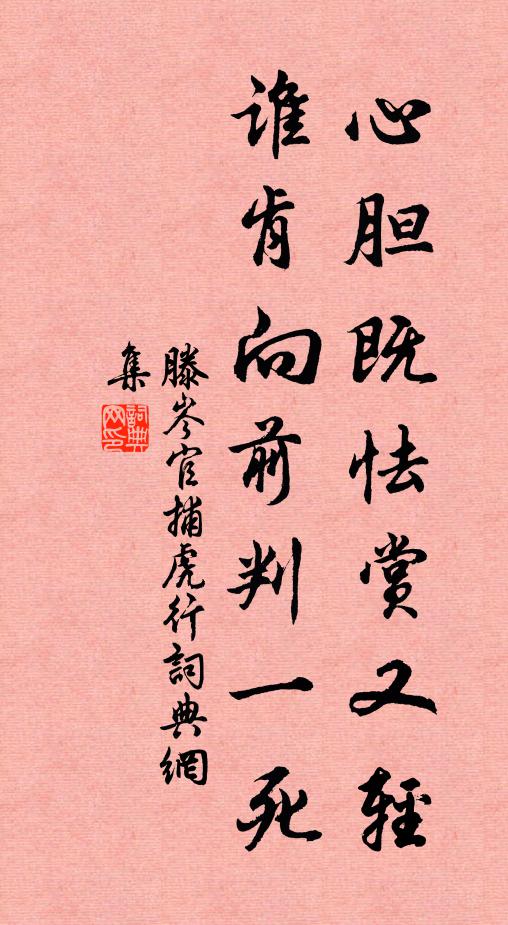 心胆既怯赏又輕
谁肯向前判一死
滕岑官捕虎行詞典網
集
詞典网印